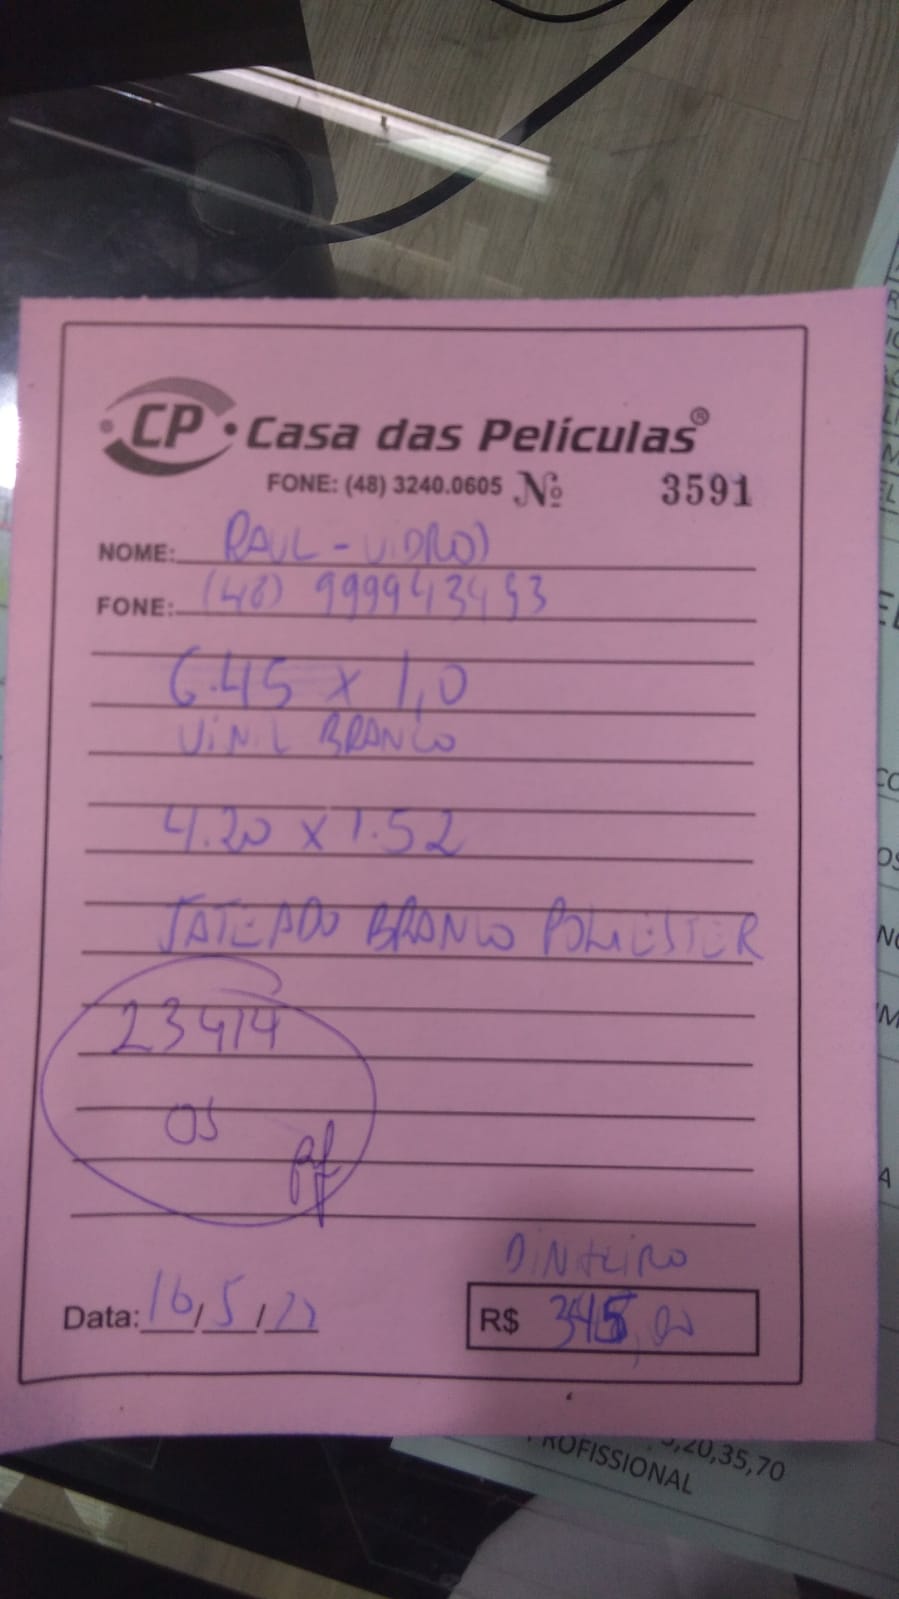 CP Casa das Películas®
FONE: (48) 3240.0605 Nº 3591
NOME: RAUL - VIDROS
FONE: (48) 999943453
6.45 x 1,0
VINIL BRANCO
4.20 x 1.52
JATEADO BRANCO POLIESTER
23414
OS
DINHEIRO
Data: 16/5/22
R$ 345,00
5,20,35,70
PROFISSIONAL